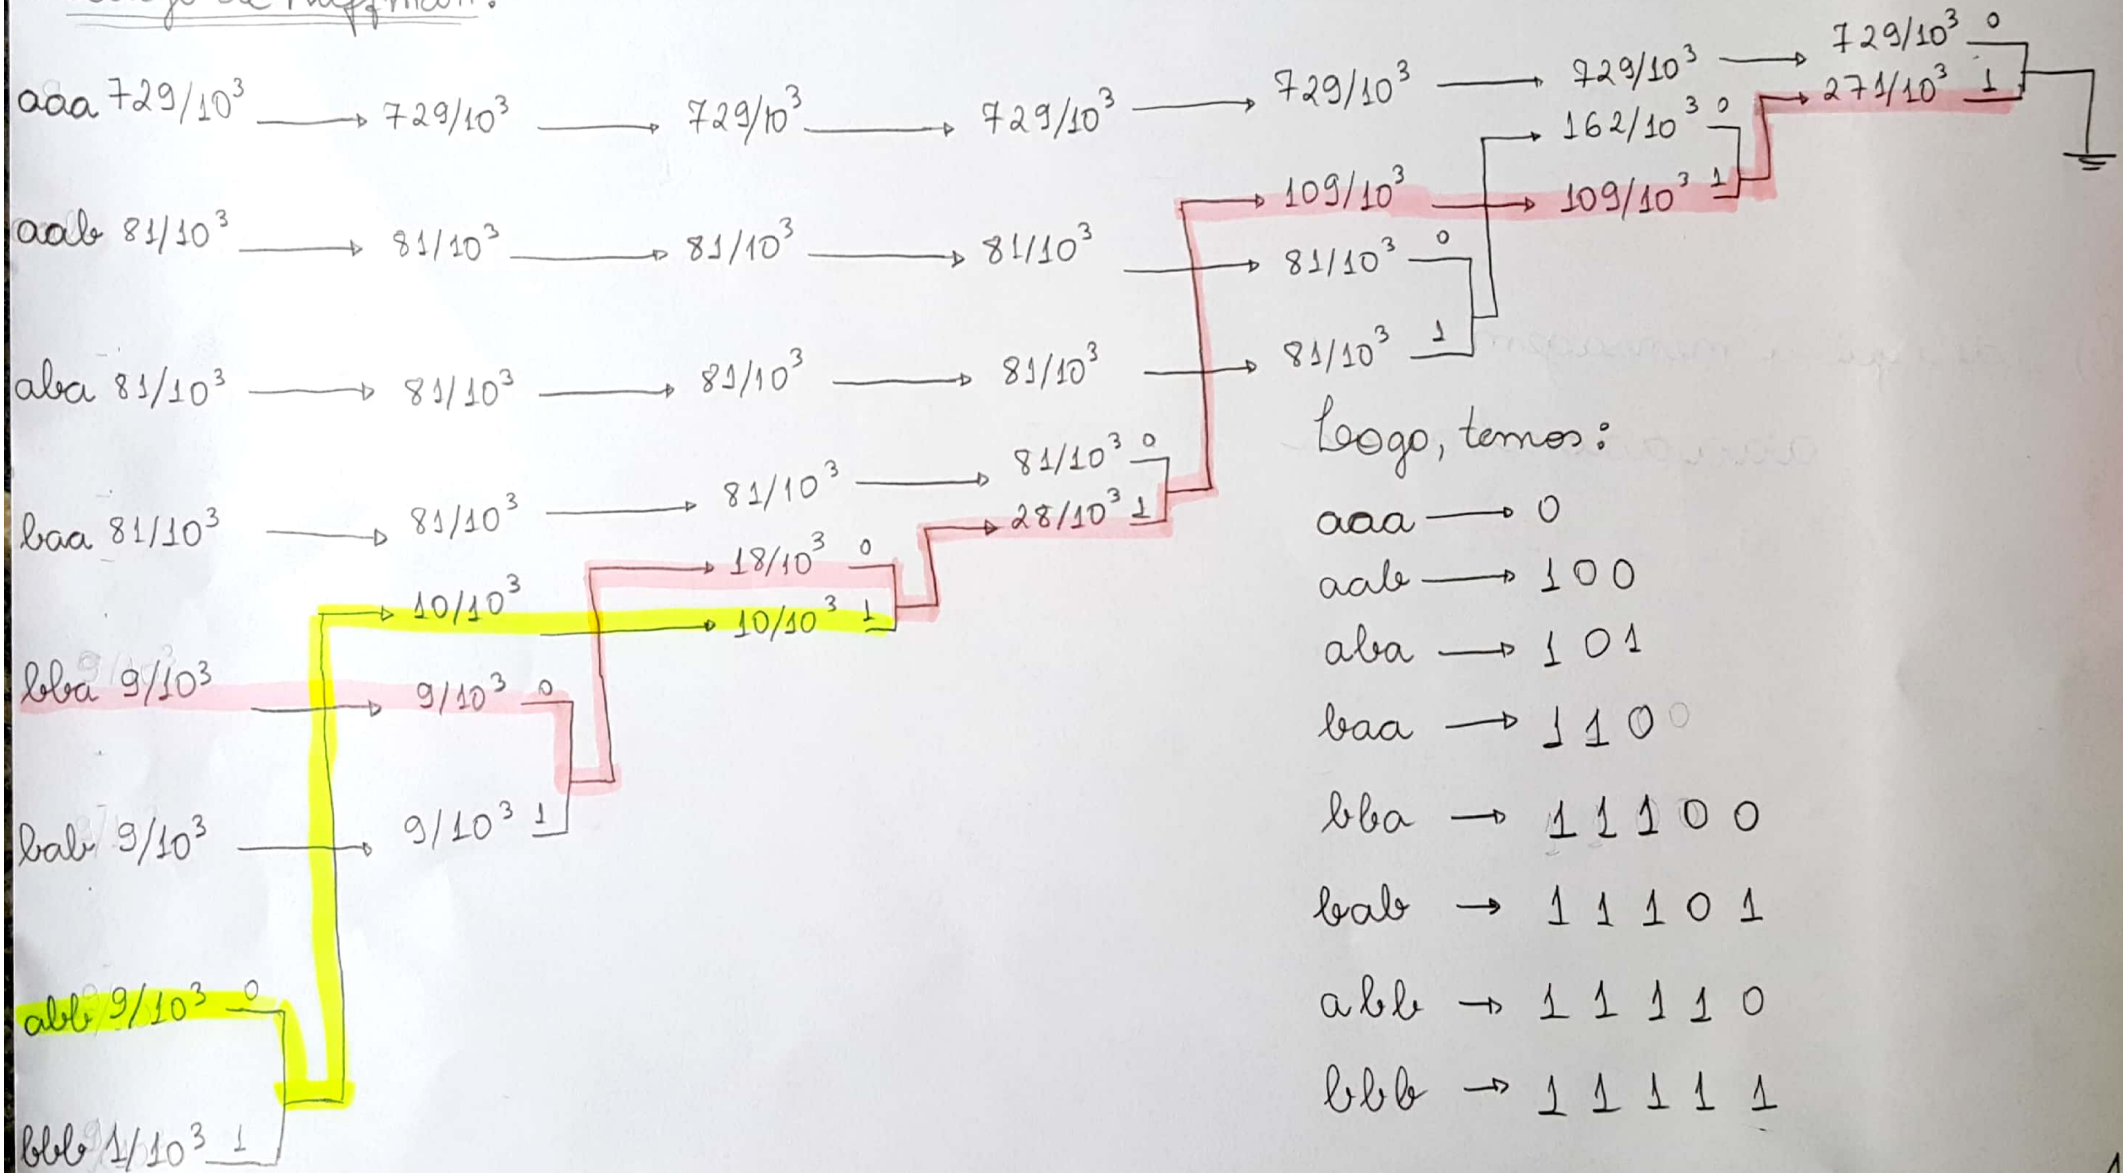 de Huffman:
aaa 729/10³ → 729/10³ → 729/10³ → 729/10³ → 729/10³ → 729/10³ → 729/10³ 0
271/10³ 1
162/10³ 0
aab 81/10³ → 81/10³ → 81/10³ → 81/10³ → 81/10³ 0
109/10³ → 109/10³ 1
aba 81/10³ → 81/10³ → 81/10³ → 81/10³ → 81/10³ 1
baa 81/10³ → 81/10³ → 81/10³ → 81/10³ 0
28/10³ 1
18/10³ 0
10/10³ → 10/10³ 1
bba 9/10³ → 9/10³ 0
bab 9/10³ → 9/10³ 1
abb 9/10³ 0
bbb 1/10³ 1
Logo, temos:
aaa → 0
aab → 100
aba → 101
baa → 110
bba → 11100
bab → 11101
abb → 11110
bbb → 11111